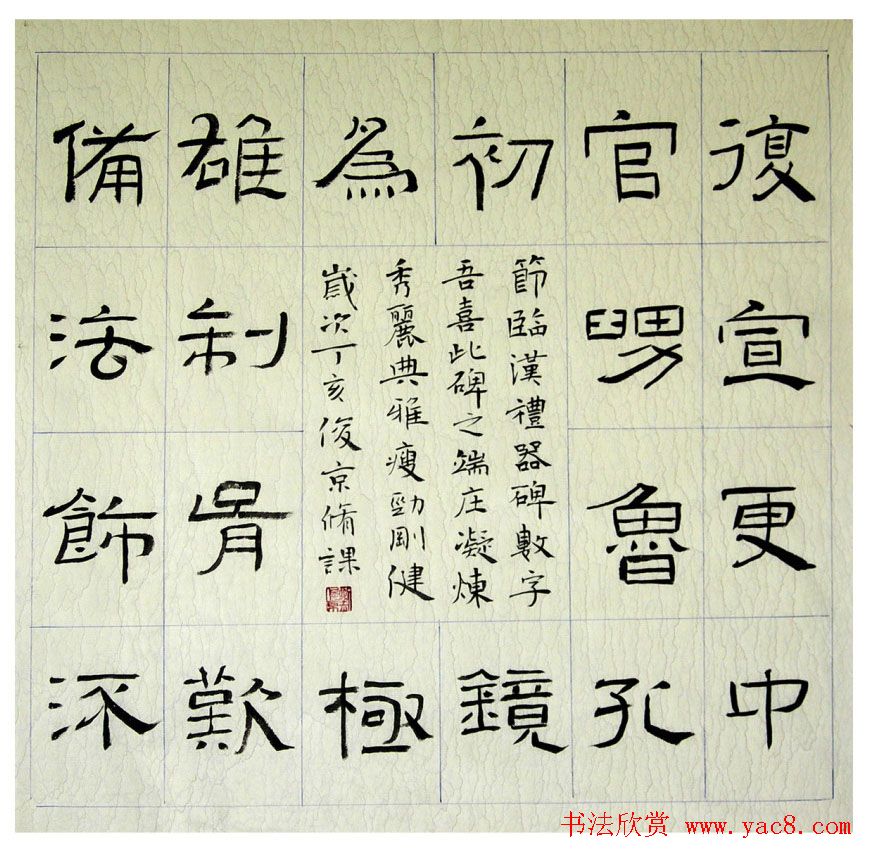 復宣更中
官舅魯孔
初鏡
爲極
雄利歎
備法飾
節臨漢禮器碑數字
吾喜此碑之端庄凝煉
秀麗典雅瘦勁剛健
歲次丁亥俊京脩課
书法欣赏 www.yac8.com